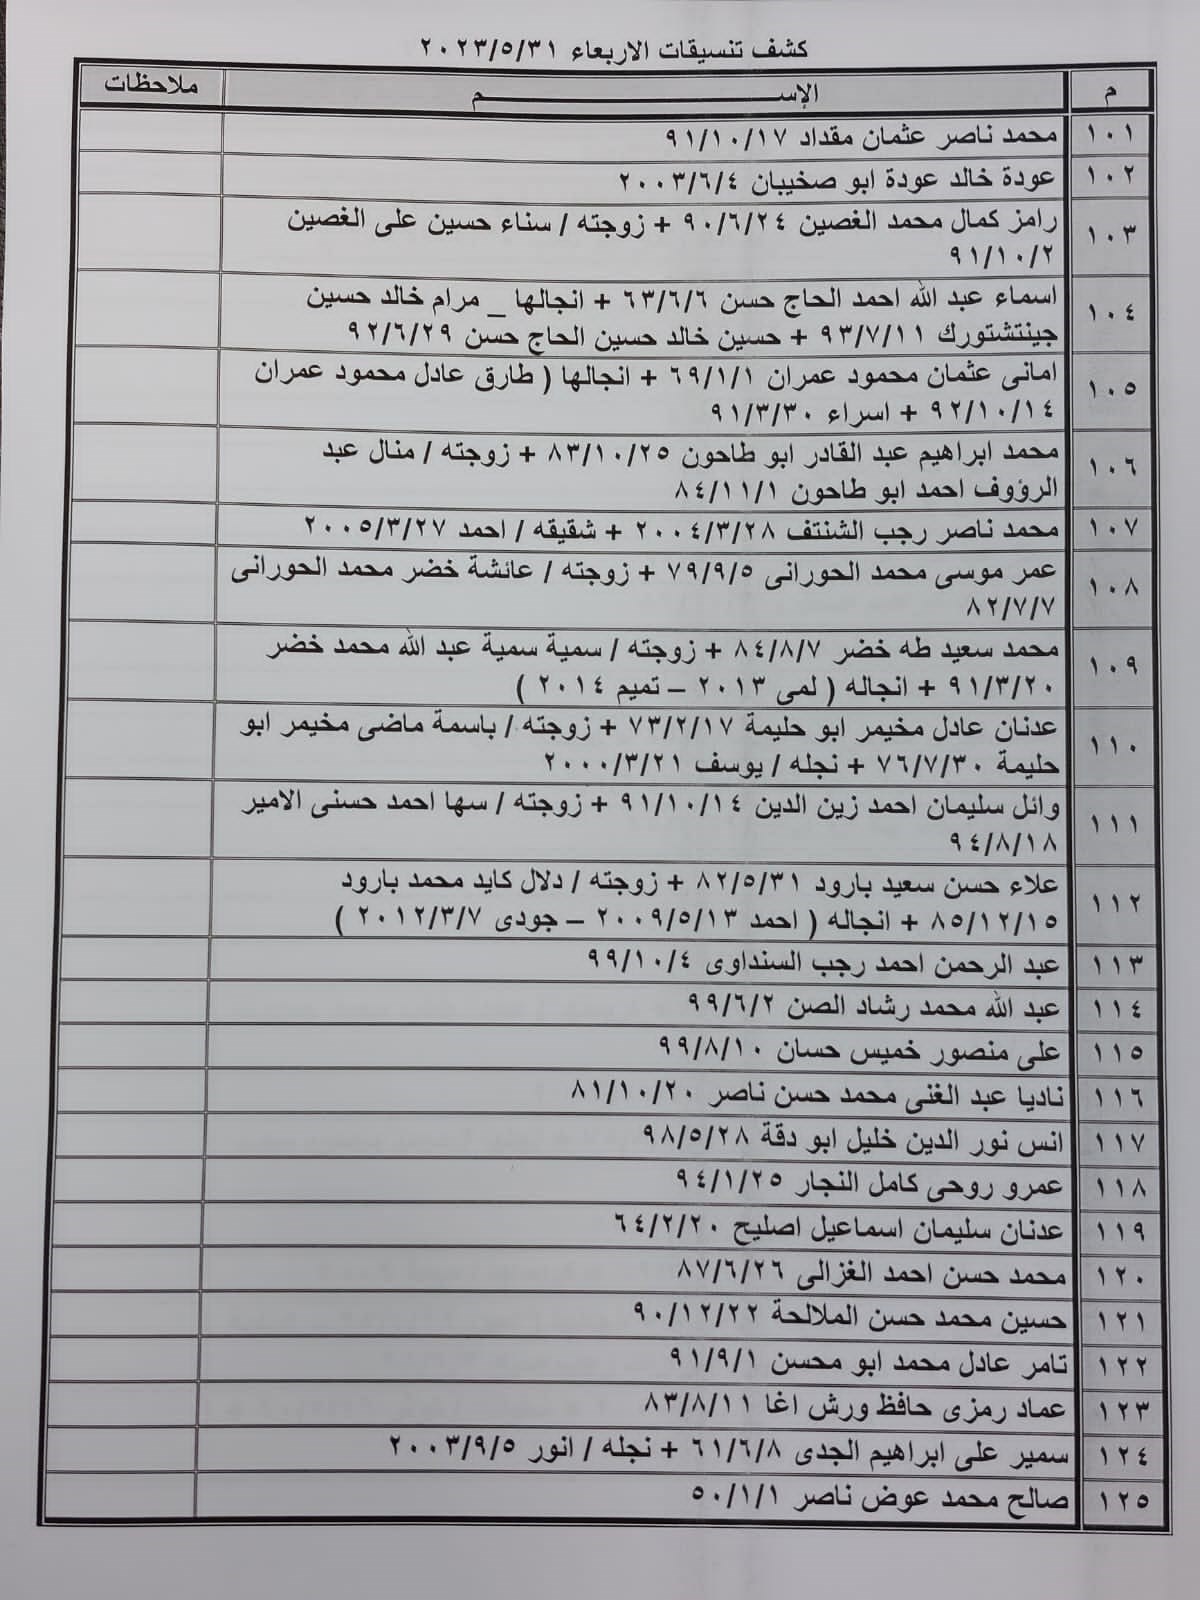 كشف تنسيقات الاربعاء ٢٠٢٣/٥/٣١
م الإســــــم ملاحظات
١٠١ محمد ناصر عثمان مقداد ٩١/١٠/١٧
١٠٢ عودة خالد عودة ابو صخيبان ٢٠٠٣/٦/٤
١٠٣ رامز كمال محمد الغصين ٩٠/٦/٢٤ + زوجته / سناء حسين على الغصين
٩١/١٠/٢
١٠٤ اسماء عبد الله احمد الحاج حسن ٦٣/٦/٦ + انجالها _ مرام خالد حسين
جينتشتورك ٩٣/٧/١١ + حسين خالد حسين الحاج حسن ٩٢/٦/٢٩
١٠٥ امانى عثمان محمود عمران ٦٩/١/١ + انجالها ( طارق عادل محمود عمران
٩٢/١٠/١٤ + اسراء ٩١/٣/٣٠
١٠٦ محمد ابراهيم عبد القادر ابو طاحون ٨٣/١٠/٢٥ + زوجته / منال عبد
الرؤوف احمد ابو طاحون ٨٤/١١/١
١٠٧ محمد ناصر رجب الشنتف ٢٠٠٤/٣/٢٨ + شقيقه / احمد ٢٠٠٥/٣/٢٧
١٠٨ عمر موسى محمد الحورانى ٧٩/٩/٥ + زوجته / عائشة خضر محمد الحورانى
٨٢/٧/٧
١٠٩ محمد سعيد طه خضر ٨٤/٨/٧ + زوجته / سمية سمية عبد الله محمد خضر
٩١/٣/٢٠ + انجاله ( لمى ٢٠١٣ – تميم ٢٠١٤ )
١١٠ عدنان عادل مخيمر ابو حليمة ٧٣/٢/١٧ + زوجته / باسمة ماضى مخيمر ابو
حليمة ٧٦/٧/٣٠ + نجله / يوسف ٢٠٠٠/٣/٢١
١١١ وائل سليمان احمد زين الدين ٩١/١٠/١٤ + زوجته / سها احمد حسنى الامير
٩٤/٨/١٨
١١٢ علاء حسن سعيد بارود ٨٢/٥/٣١ + زوجته / دلال كايد محمد بارود
٨٥/١٢/١٥ + انجاله ( احمد ٢٠٠٩/٥/١٣ – جودى ٢٠١٢/٣/٧ )
١١٣ عبد الرحمن احمد رجب السنداوى ٩٩/١٠/٤
١١٤ عبد الله محمد رشاد الصن ٩٩/٦/٢
١١٥ على منصور خميس حسان ٩٩/٨/١٠
١١٦ ناديا عبد الغنى محمد حسن ناصر ٨١/١٠/٢٠
١١٧ انس نور الدين خليل ابو دقة ٩٨/٥/٢٨
١١٨ عمرو روحى كامل النجار ٩٤/١/٢٥
١١٩ عدنان سليمان اسماعيل اصليح ٦٤/٢/٢٠
١٢٠ محمد حسن احمد الغزالى ٨٧/٦/٢٦
١٢١ حسين محمد حسن الملالحة ٩٠/١٢/٢٢
١٢٢ تامر عادل محمد ابو محسن ٩١/٩/١
١٢٣ عماد رمزى حافظ ورش اغا ٨٣/٨/١١
١٢٤ سمير على ابراهيم الجدى ٦١/٦/٨ + نجله / انور ٢٠٠٣/٩/٥
١٢٥ صالح محمد عوض ناصر ٥٠/١/١